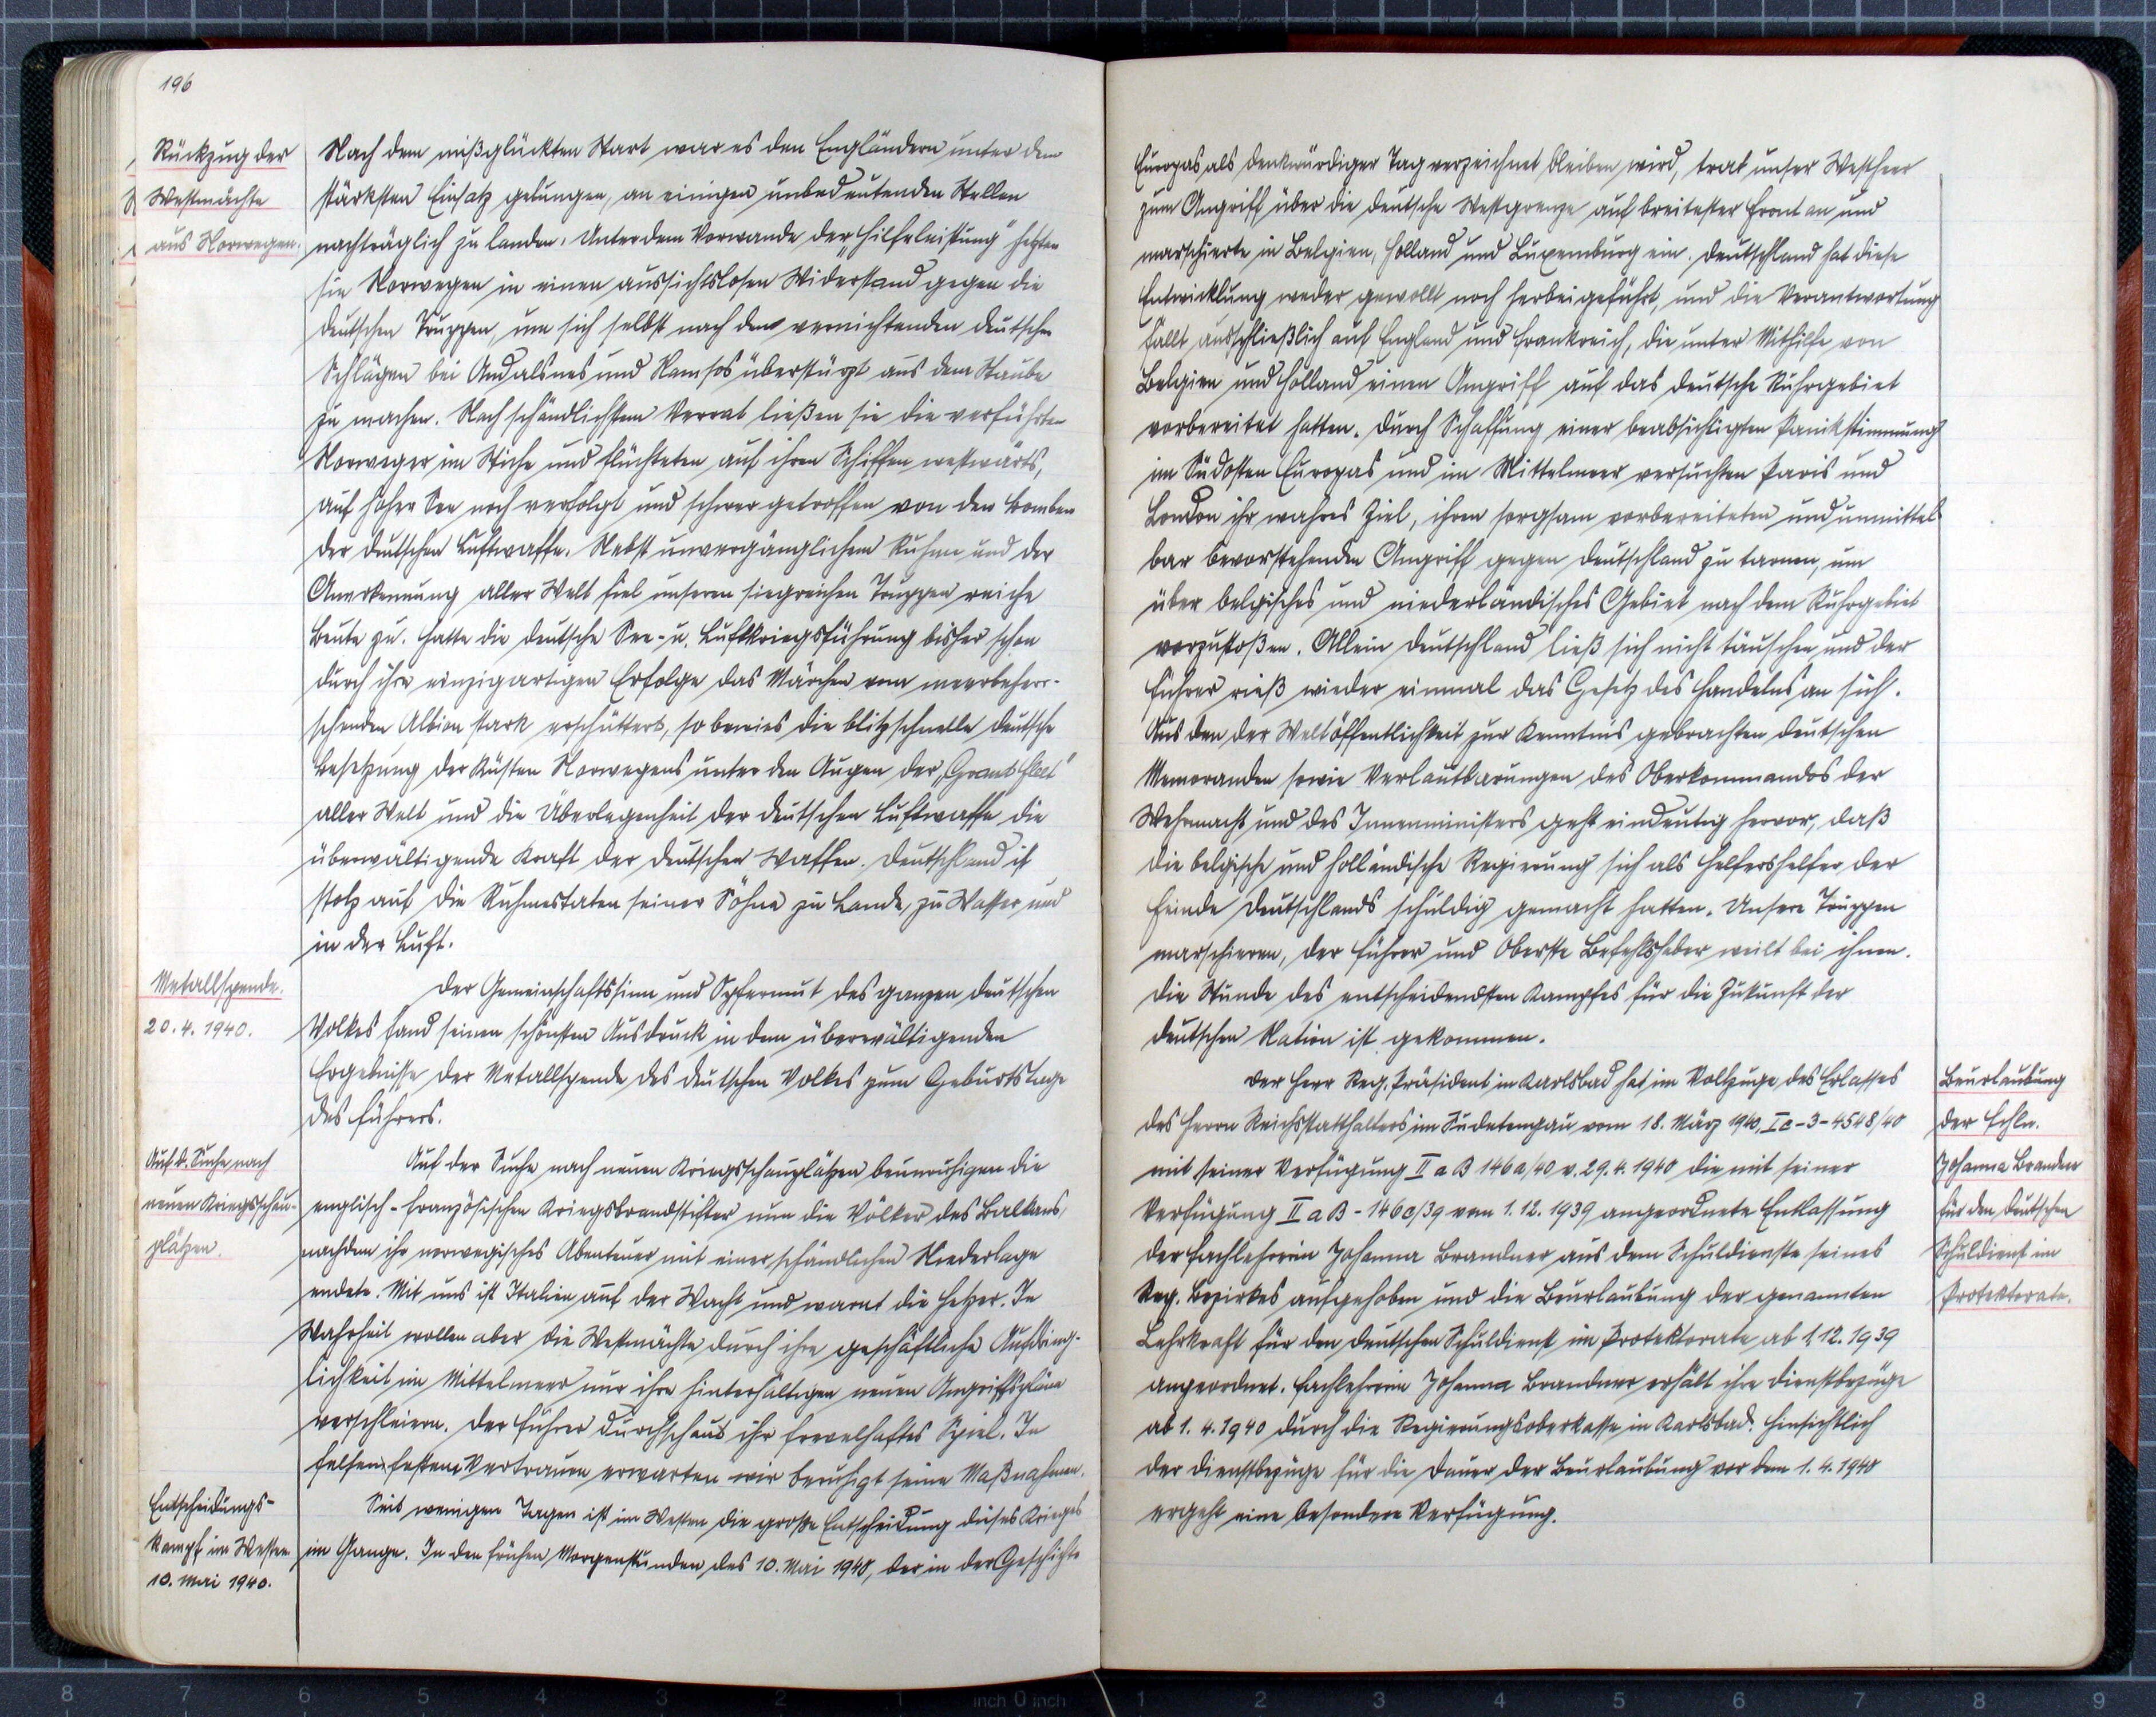 196
Rückzug der
Westmächte
aus Norwegen.
Nach dem mißglückten Start war es den Engländern unter dem
stärksten Einsatz gelungen, an einigen unbedeutenden Stellen
nachträglich zu landen. Unter dem Vorwande der „Hilfeleistung" hetzten
sie Norwegen in einen aussichtslosen Widerstand gegen die
deutschen Truppen, um sich selbst nach den vernichtenden deutschen
Schlägen bei Andalsnes und Namsos überstürzt aus dem Staube
zu machen. Nach schändlichstem Verrat ließen sie die verführten
Norweger im Stiche und flüchteten auf ihren Schiffen westwärts,
auf hoher See noch verfolgt und schwer getroffen von den Bomben
der deutschen Luftwaffe. Nebst unvergänglichem Ruhme und der
Anerkennung aller Welt fiel unseren siegreichen Truppen reiche
Beute zu. Hatte die deutsche See- u. Luftkriegsführung bisher schon
durch ihre einzigartigen Erfolge das Märchen vom meerbeherr-
schenden Albion stark erschüttert, so bewies die blitzschnelle deutsche
Besetzung der Küsten Norwegens unter den Augen der „Grand Fleet"
aller Welt und die Überlegenheit der deutschen Luftwaffe die
überwältigende Kraft der deutschen Waffen. Deutschland ist
stolz auf die Ruhmestaten seiner Söhne zu Lande, zu Wasser und
in der Luft.
Metallspende.
20.4.1940.
Der Gemeinschaftssinn und Opfermut des ganzen deutschen
Volkes fand seinen schönsten Ausdruck in dem überwältigenden
Ergebnisse der Metallspende des deutschen Volkes zum Geburtstage
des Führers.
Auf d. Suche nach
neuen Kriegsschau-
plätzen.
Auf der Suche nach neuen Kriegsschauplätzen beunruhigen die
englisch-französischen Kriegsbrandstifter nun die Völker des Balkans,
nachdem ihr norwegisches Abenteuer mit einer schändlichen Niederlage
endete. Mit uns ist Italien auf der Wacht und warnt die Hetzer. In
Wahrheit wollen aber die Westmächte durch ihre geschäftliche Aufdring-
lichkeit im Mittelmeer nur ihre hinterhältigen neuen Angriffspläne
verschleiern. Der Führer durchschaut ihr frevelhaftes Spiel. In
felsenfestem Vertrauen erwarten wir beruhigt seine Maßnahmen.
Entscheidungs-
kampf im Westen
10. Mai 1940.
Seit wenigen Tagen ist im Westen die große Entscheidung dieses Krieges
im Gange. In den frühen Morgenstunden des 10. Mai 1940, der in der Geschichte
Europas als denkwürdiger Tag verzeichnet bleiben wird, trat unser Westheer
zum Angriff über die deutsche Westgrenze auf breitester Front an und
marschierte in Belgien, Holland und Luxemburg ein. Deutschland hat diese
Entwicklung weder gewollt noch herbeigeführt, und die Verantwortung
fällt ausschließlich auf England und Frankreich, die unter Mithilfe von
Belgien und Holland einen Angriff auf das deutsche Ruhrgebiet
vorbereitet hatten. Durch Schaffung einer beabsichtigten Panikstimmung
im Südosten Europas und im Mittelmeer versuchten Paris und
London ihr wahres Ziel, ihren sorgsam vorbereiteten und unmittel-
bar bevorstehenden Angriff gegen Deutschland zu tarnen, um
über belgisches und niederländisches Gebiet nach dem Ruhrgebiet
vorzustoßen. Allein Deutschland ließ sich nicht täuschen und der
Führer riß wieder einmal das Gesetz des Handelns an sich.
Aus den der Weltöffentlichkeit zur Kenntnis gebrachten deutschen
Memoranden sowie Verlautbarungen des Oberkommandos der
Wehrmacht und des Innenministers geht eindeutig hervor, daß
die belgische und holländische Regierung sich als Helfershelfer der
Feinde Deutschlands schuldig gemacht hatten. Unsere Truppen
marschieren, der Führer und Oberste Befehlshaber weilt bei ihnen.
Die Stunde des entscheidendsten Kampfes für die Zukunft der
deutschen Nation ist gekommen.
Der Herr Reg. Präsident in Karlsbad hat im Vollzuge des Erlasses
des Herrn Reichsstatthalters im Sudetengau vom 18. März 1940, Ic-3-4548/40
mit seiner Verfügung II a B 146a/40 v. 29.4.1940 die mit seiner
Verfügung II a B - 146c/39 vom 1.12.1939 angeordnete Entlassung
der Fachlehrerin Johanna Brandner aus dem Schuldienste seines
Reg. Bezirkes aufgehoben und die Beurlaubung der genannten
Lehrkraft für den deutschen Schuldienst im Protektorate ab 1.12.1939
angeordnet. Fachlehrerin Johanna Brandner erhält ihre Dienstbezüge
ab 1.4.1940 durch die Regierungsoberkasse in Karlsbad. Hinsichtlich
der Dienstbezüge für die Dauer der Beurlaubung vor dem 1.4.1940
ergeht eine besondere Verfügung.
Beurlaubung
der Fchln.
Johanna Brandner
für den deutschen
Schuldienst im
Protektorate.